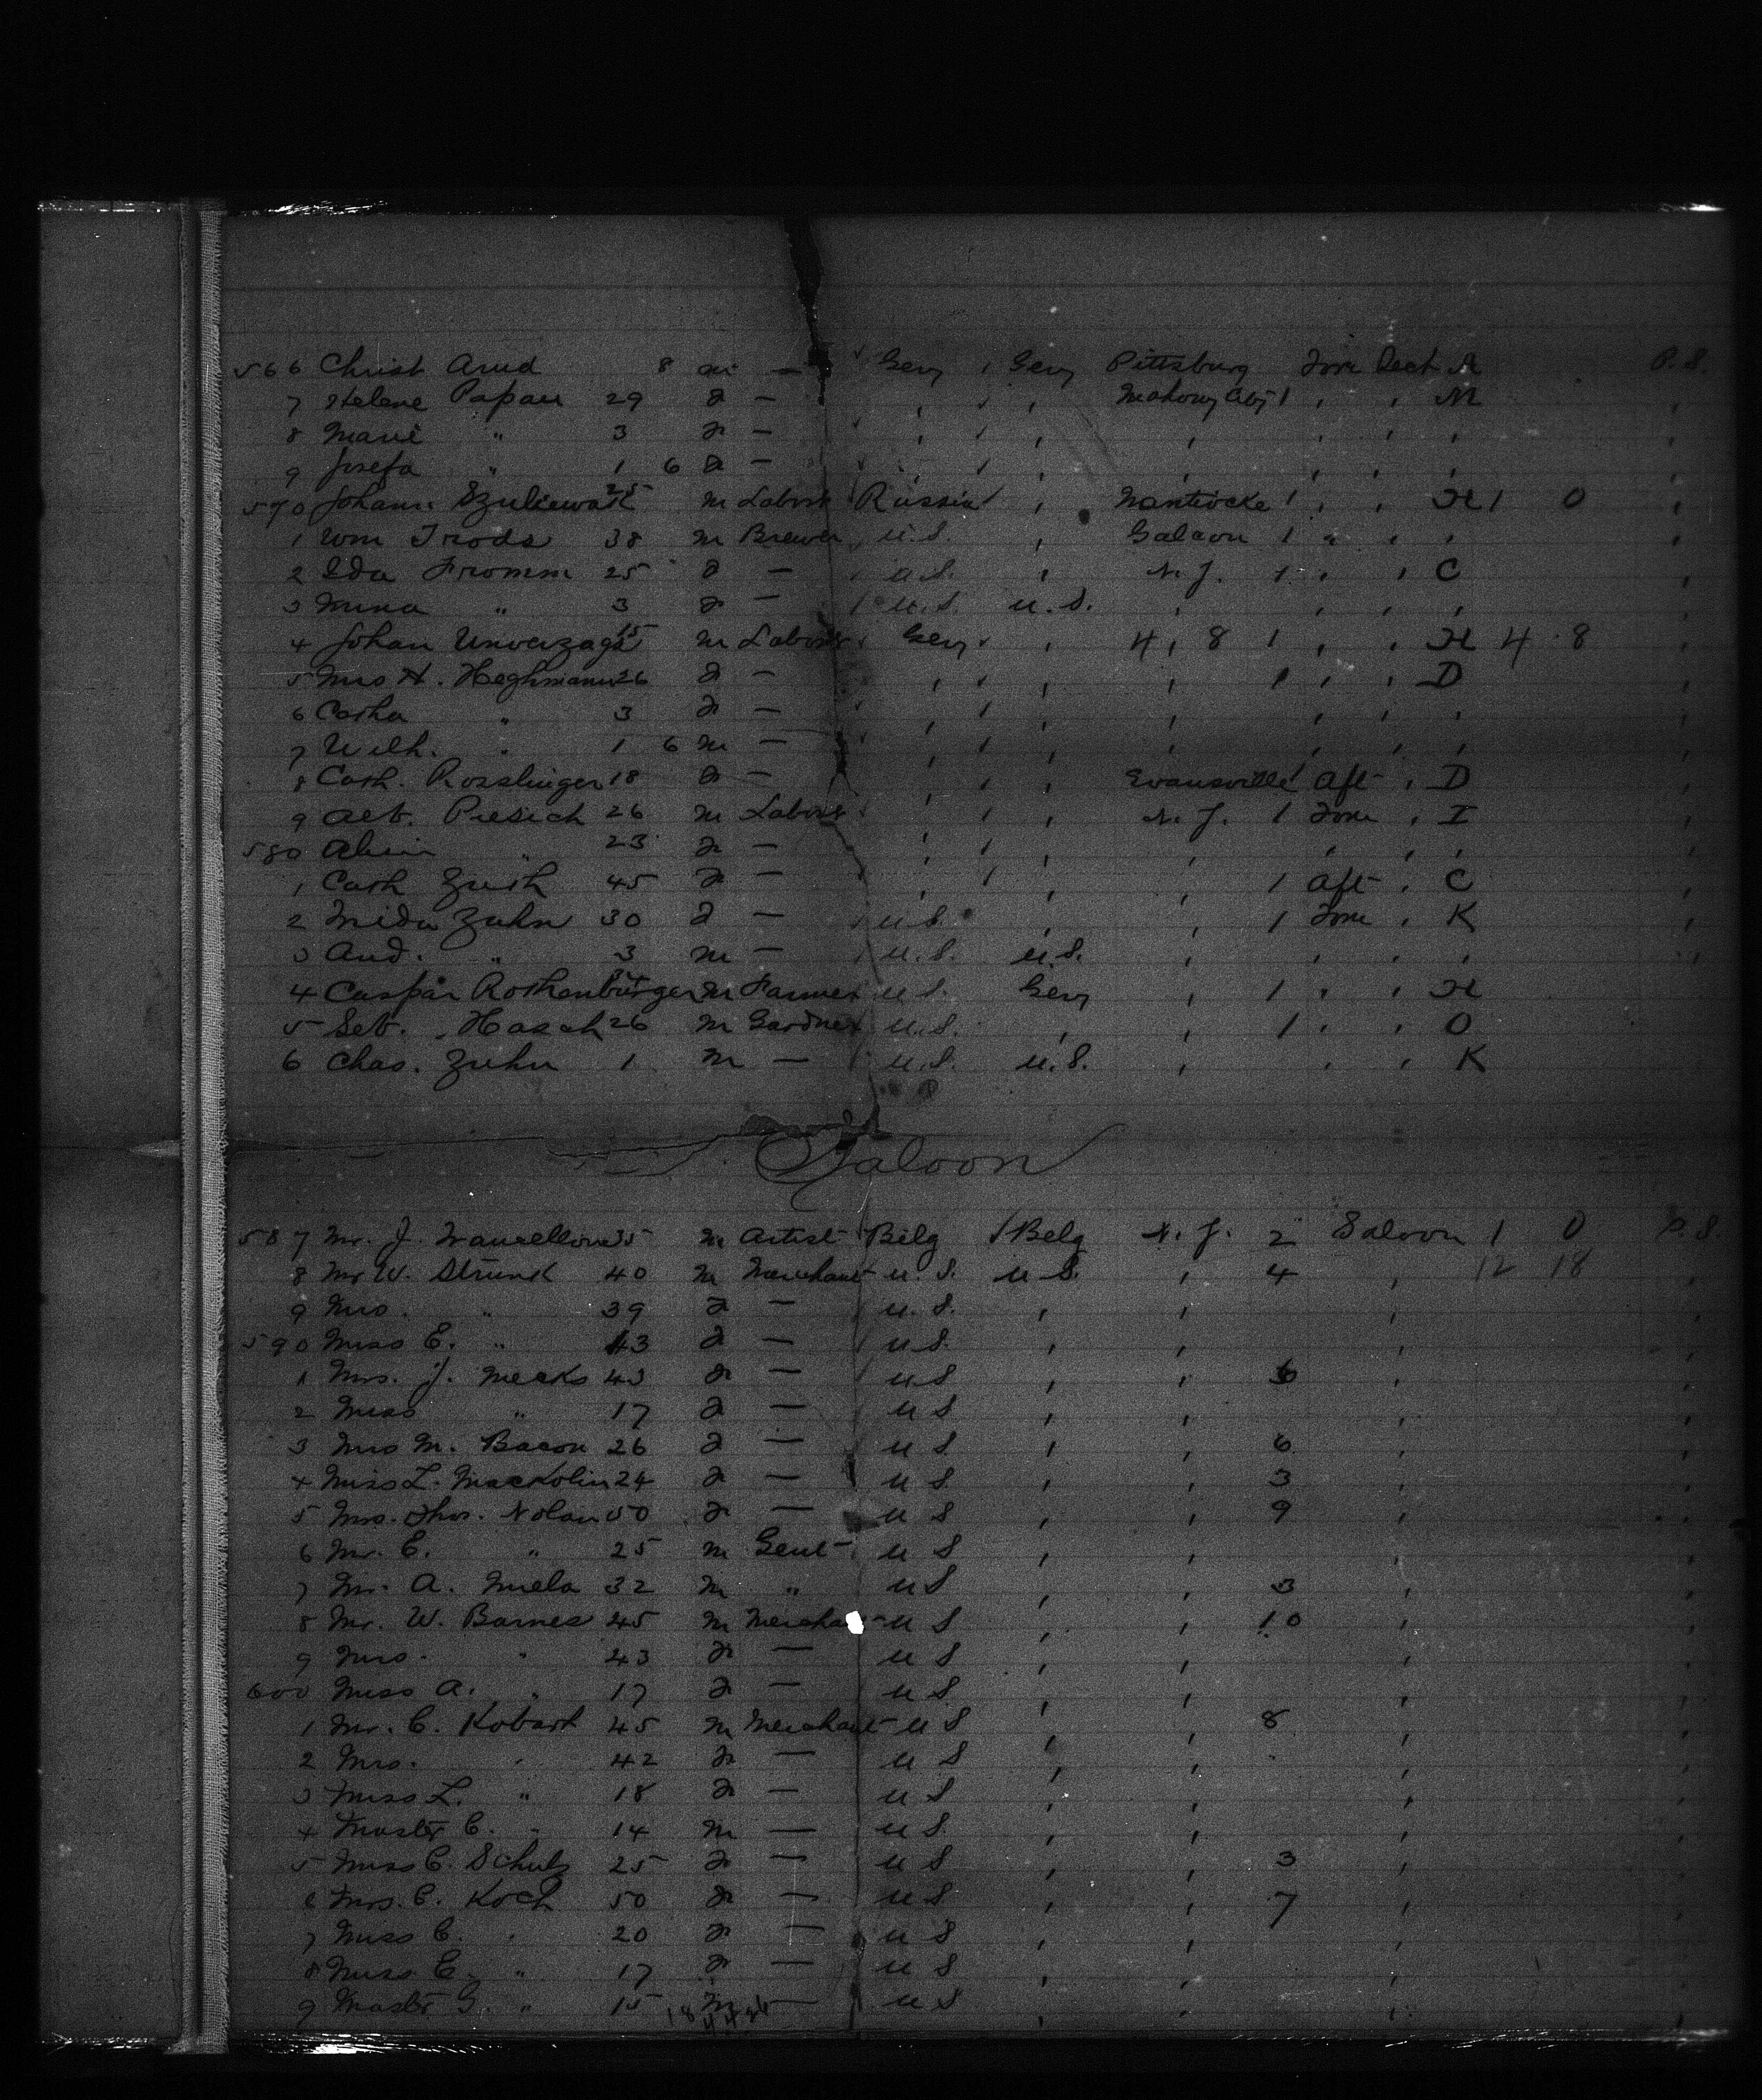 566 Christ Arnd 8 m — Gery Gery Pittsburg Fore Deck M P.S.
7 Helene Papau 29 f — , , Mahony 1 , , M ,
8 Marie " 3 f — , , , , , , ,
9 Josefa " 1 6 f — , , , , , , ,
570 Johann 25 m Labor Russia , Nanticoke 1 , , H 1 0 ,
1 Wm Trods 38 m Brewer U.S. , 1 " , , ,
2 Ida Fromm 25 f — U.S. , N. J. 1 , , C ,
3 Mina " 3 f — U.S. U.S. , , , , ,
4 Johan Unverzagt 15 m Labor Gery , 4 , 8 1 , , H 4 8 ,
5 Mrs H. Heghmann 26 f — , , , 1 , , D ,
6 " 3 f — , , , , , , ,
7 Wilh. " 1 6 m — , , , , , , ,
8 Cath. Rosslinger 18 f — , , Evansville 1 Aft , D ,
9 Alb. Piesich 26 m Labor , , N. J. 1 Fore , I ,
580 " 23 f — , , , , , , ,
1 Cath 45 f — , , , 1 Aft , C ,
2 Zuhn 30 f — U.S. , , 1 Fore , K ,
3 And. " 3 m — U.S. U.S. , , , , ,
4 Caspar Rothenburger m Farmer U.S. Gery , 1 , , H ,
5 Seb. Hasch 26 m Gardner U.S. , , 1 , , O ,
6 Chas. Zuhn 1 m — U.S. U.S. , , , K
Saloon
587 Mr. J. 35 m Artist Belg Belg N. J. 2 Saloon 1 0 P.S.
8 Mr W. Strunk 40 m Merchant U.S. U.S. , 4 , 12 18 ,
9 Mrs. " 39 f — U.S. , , , ,
590 Miss E. " 13 f — U.S. , , , ,
1 Mrs. J. Meeks 43 f — U S , , 6 , ,
2 Miss " 17 f — U S , , , ,
3 Mrs M. Bacon 26 f — U S. , , 6 , ,
4 Miss L. 24 f — U S , , 3 , ,
5 Mrs. Thos. Nolan 50 f — U S , , 9 , ,
6 Mr. E. " 25 m Gent U S , , , ,
7 Mr. A. 32 m " U S , , 3 , ,
8 Mr. W. Barnes 45 m Merchant U S , , 10 , ,
9 Mrs. " 43 f — U S , , , ,
600 Miss A. " 17 f — U S , , , ,
1 Mr. C. Kobart 45 m Merchant U S , , 8 , ,
2 Mrs. " 42 f — U S , , , ,
3 Miss L. " 18 f — U S , , , ,
4 Master C. " 14 m — U S. , , , ,
5 Miss C. Schulz 25 f — U S , , 3 , ,
6 Mrs. C. Koch 50 f — U S , , 7 , ,
7 Miss C. " 20 f — U S , , , ,
8 Miss E. " 17 f — U S , , , ,
9 Master G. " 15 m — U S , , , ,